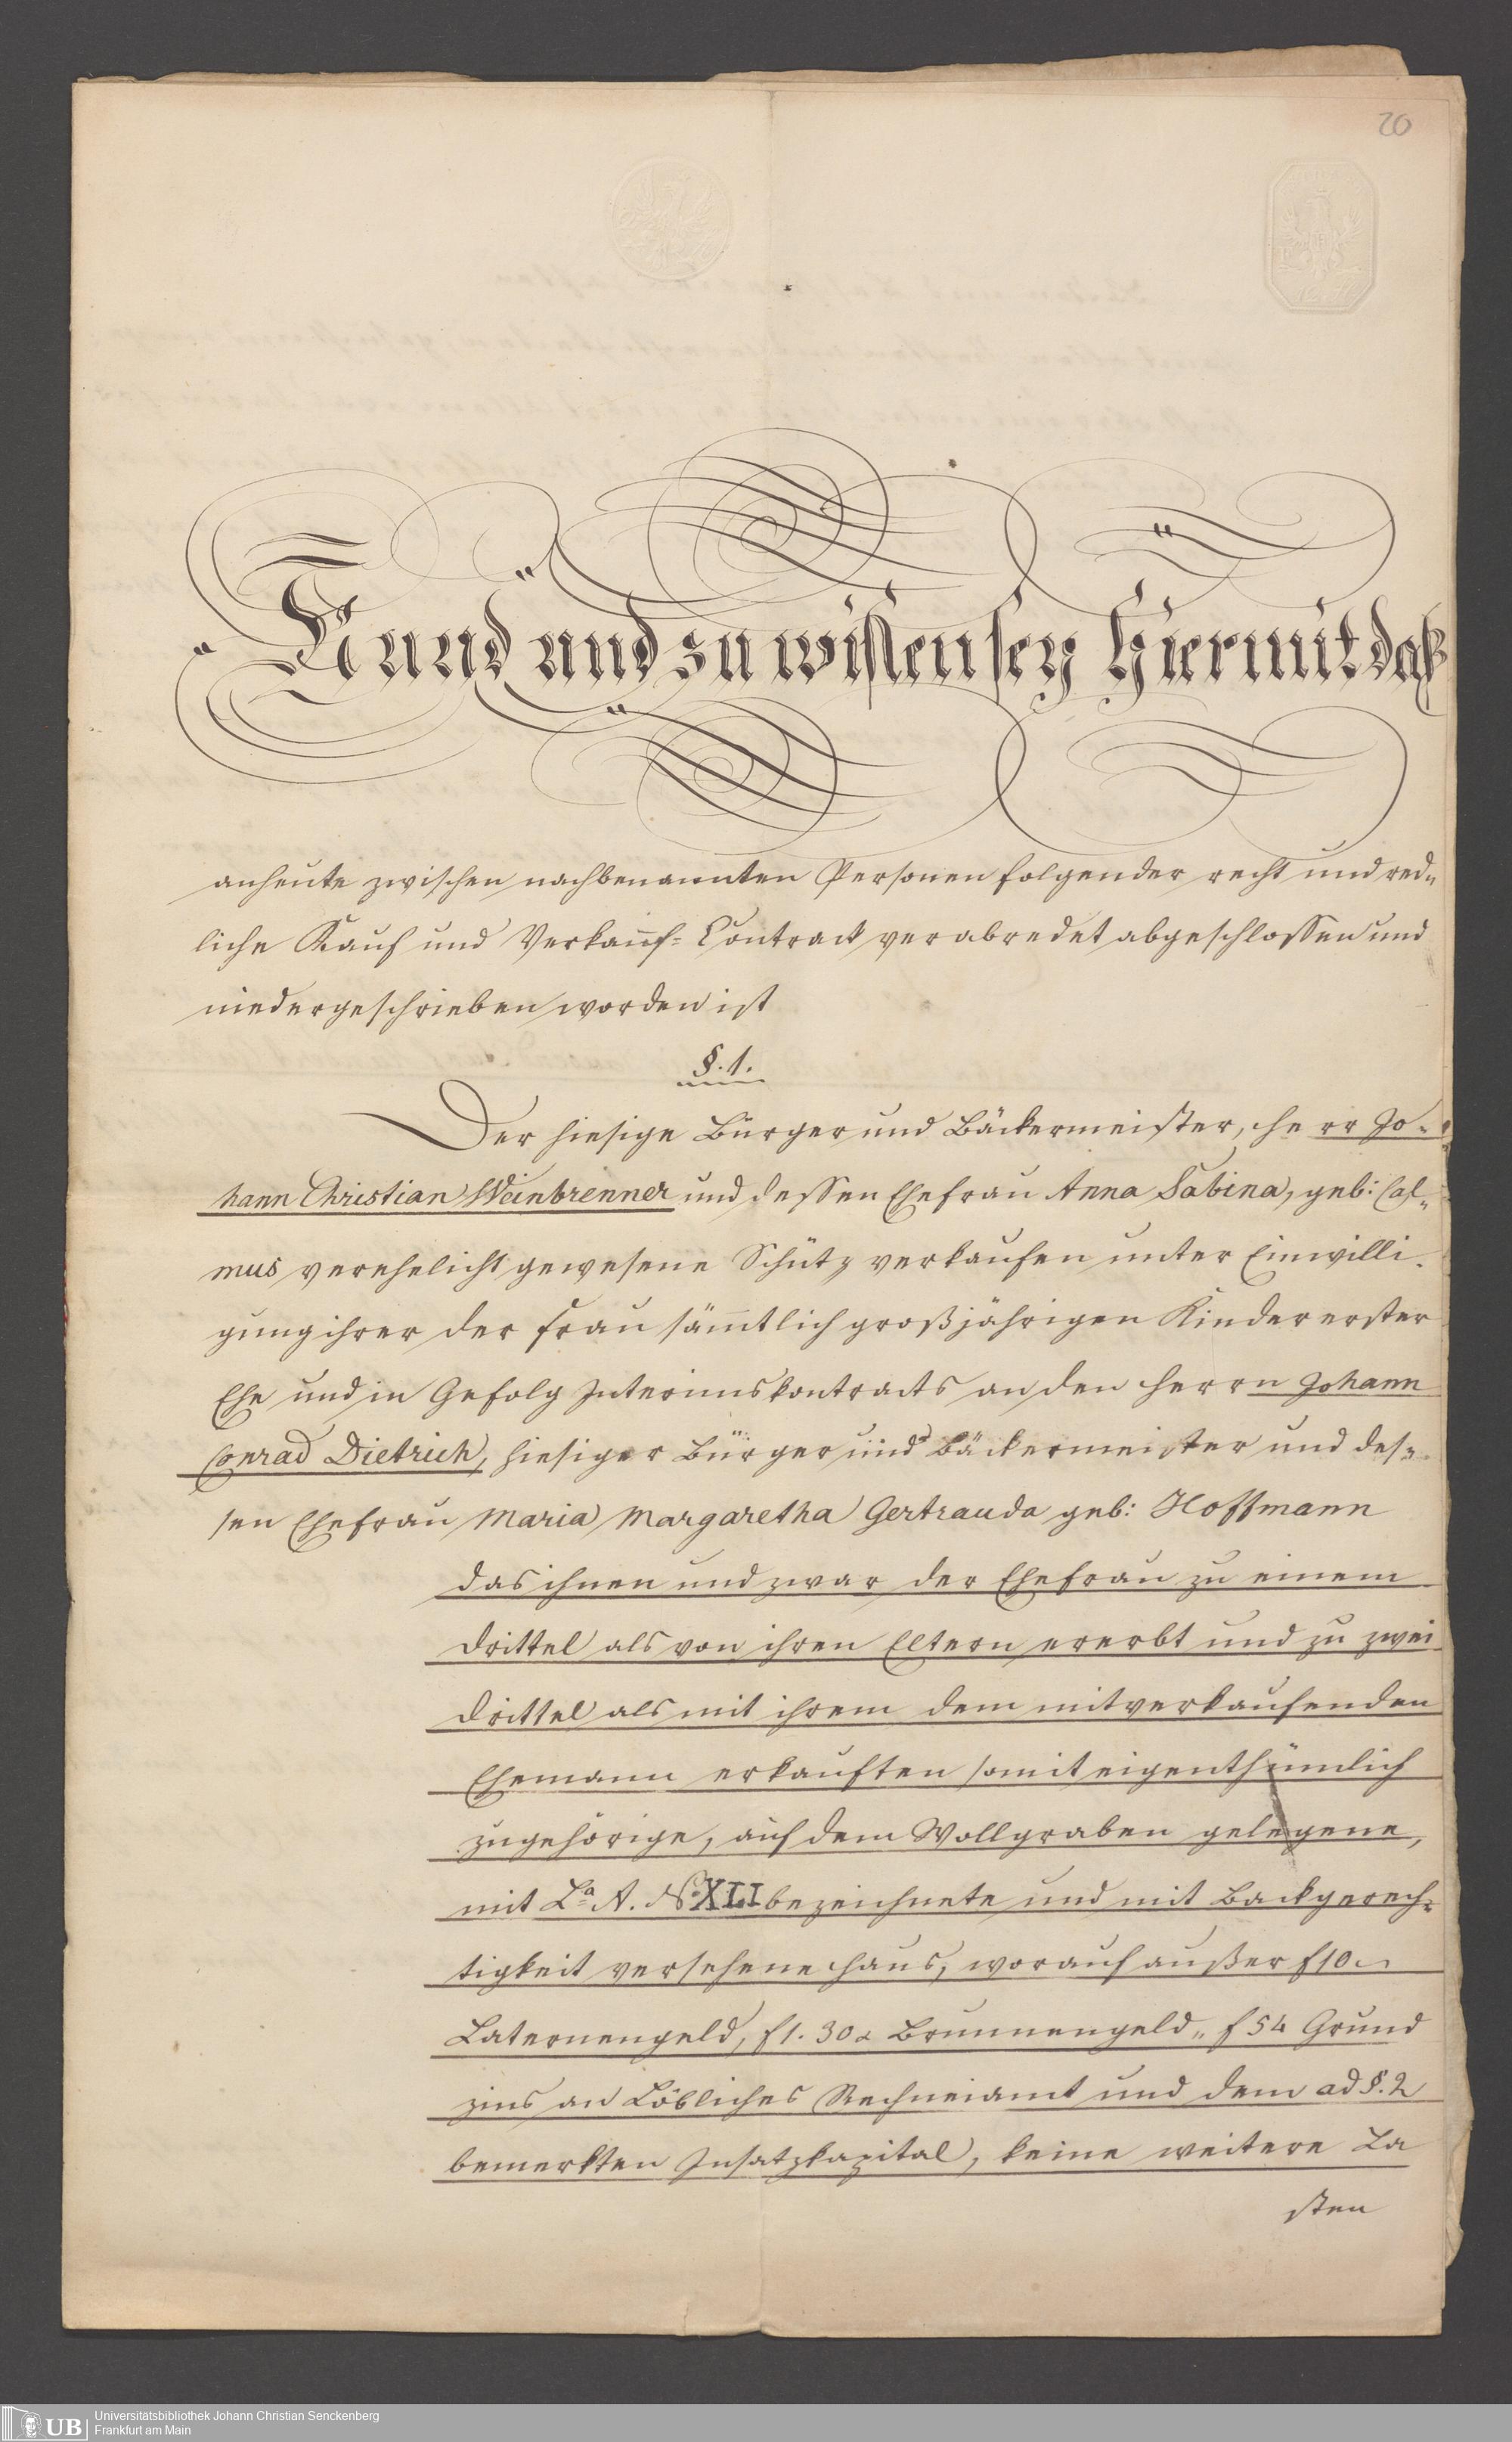 20
Kund und zu wissen sey hiermit daß
anheute zwischen nachbenannten Personen folgender recht und red„
liche Kauf und Verkauf= Contract verabredet abgeschlossen und
niedergeschrieben worden ist
§. 1.
Der hiesige Bürger und Bäckermeister, Herr Jo„
hann Christian Weinbrenner und dessen Ehefrau Anna Sabina, geb: Cal„
mus verehelicht gewesene Schütz verkaufen unter Einwilli„
gung ihrer der Frau sämtlich großjährigen Kinder erster
Ehe und in Gefolg Interimskontracts an den Herrn Johann
Conrad Dietrich, hiesiger Bürger und Bäckermeister und des„
sen Ehefrau Maria Margaretha Gertrauda geb: Hoffmann
das ihnen und zwar der Ehefrau zu einem
Drittel als von ihren Eltern ererbt und zu zwei
Drittel als mit ihrem dem mitverkaufenden
Ehemann erkauften somit eigenthümlich
zugehörige, auf dem Wollgraben gelegene,
mit La A. No XLI bezeichnete und mit Backgerech„
tigkeit versehene Haus, worauf außer f 10
Laternengeld, f 1. 30 x Brunnengeld„ f 54 Grund
zins an Löbliches Rechneiamt und dem ad §. 2
bemerkten Insatzkapital, keine weitere La
sten
UB
Universitätsbibliothek Johann Christian Senckenberg
Frankfurt am Main